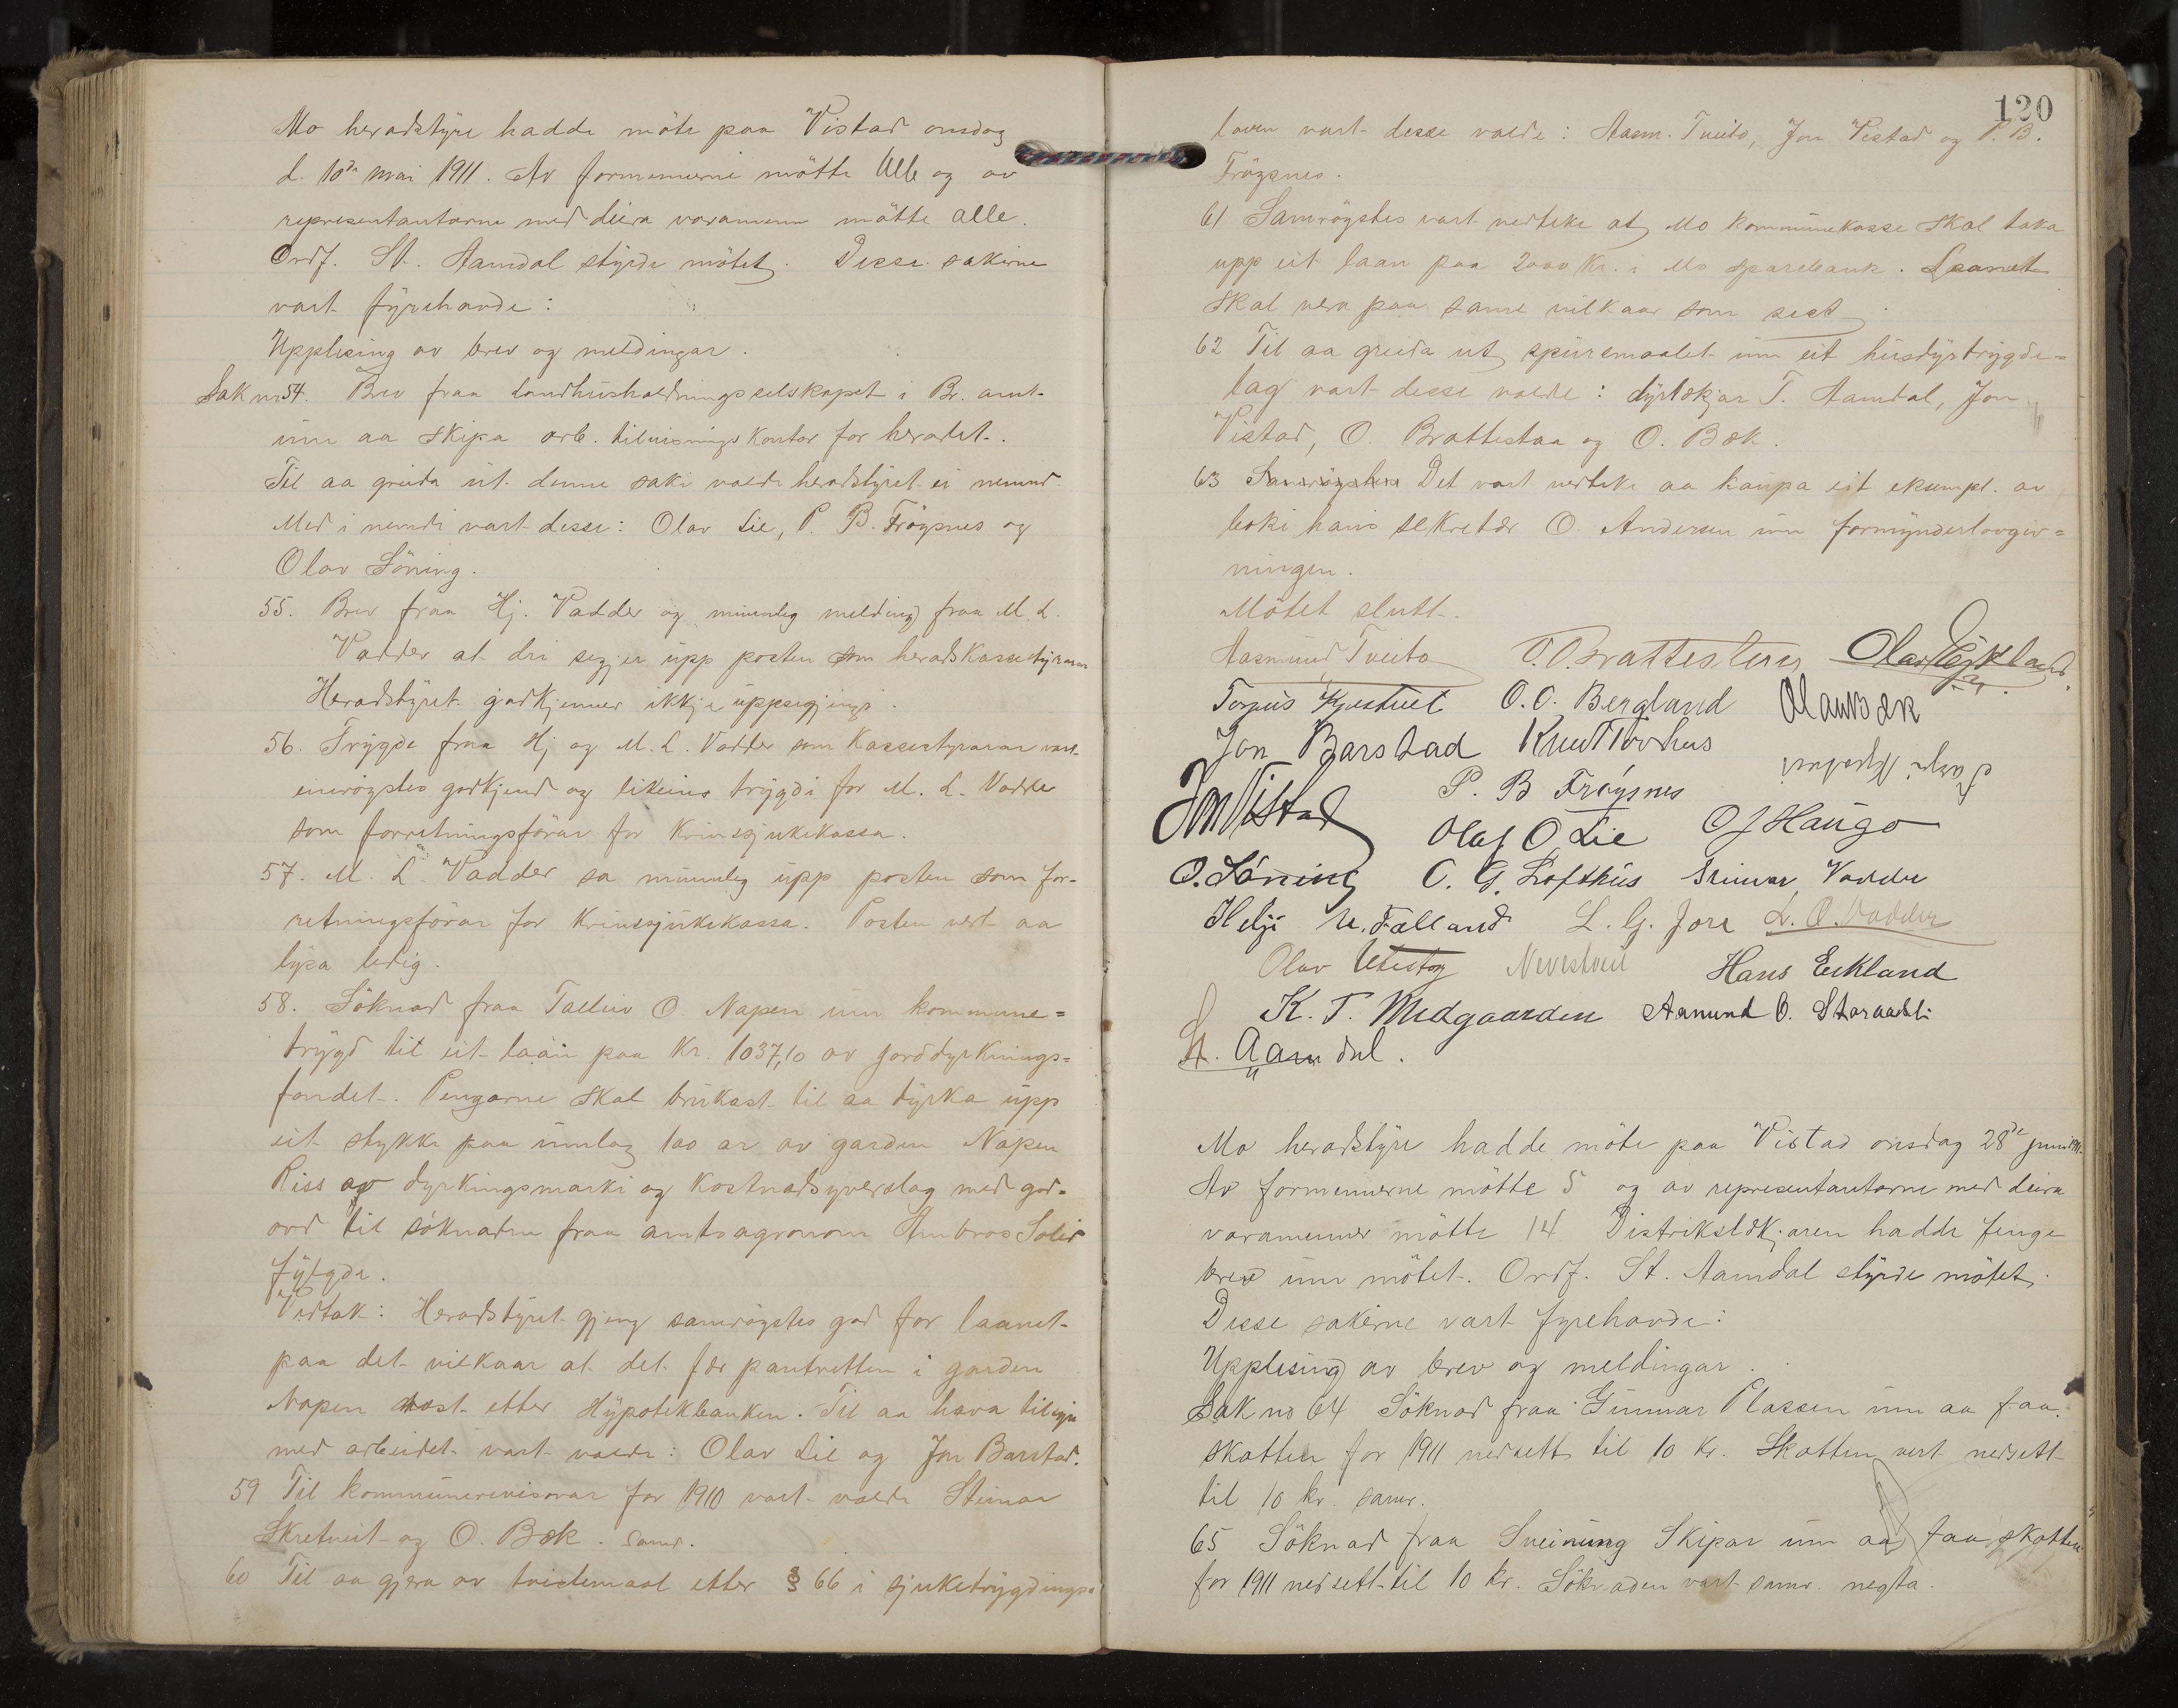 Mo heradstyre hadde möte paa Vistad onsdag
d. 10de mai 1911. Av formennerne mötte alle og av
representantarne med deira varamenn mötte alle.
Ordf. St. Aamdal styrde mötet. Desse sakerne
vart fyrehavde:
Upplesing av brev og meldingar.
Sak nr 54. Brev fraa Landhusholdningsselskapet i Br. amt
um aa skipa arb. tilvisningskontor for heradet.
Til aa greida ut denne saki valde heradstyret ei nemnd.
Med i nemdi vart desse: Olav Lie, P. B. Fröysnes og
Olav Löning.
55. Brev fraa Hj. Vadder og munnleg melding fraa M. L.
Vadder at dei segjer upp posten som heradskassestyrarar
Heradstyret godkjenner ikkje uppsegjingi.
56. Trygde fraa Hj og M. L. Vadder som kassestyrarar vart
einröystes godkjend og likeins trygdi for M. L. Vadder
som forretningsförar for Krinssjukekassa.
57. M. L. Vadder sa munnleg upp posten som for-
retningsförar for Krinssjukekassa. Posten vert aa
lysa ledig.
58. Söknad fraa Talleiv O. Napen um kommune=
trygd til eit laan paa Kr. 1037,10 av jorddyrknings=
fondet. Pengarne skal brukast til aa dyrka upp
eit stykke paa umlag 100 ar av garden Napen
Riss av dyrkingsmarki og kostnadsyverslag med god=
ord til söknaden fraa amtsagronom Ambros Solid
fylgde.
Vedtak: Heradstyret gjeng samröystes god for laanet
paa det vilkaar at det fær pantretten i garden
Napen næst etter Hypotekbanken. Til aa hava tilsyn
med arbeidet vart valde: Olav Lie og Jon Barstad.
59 Til kommunerevisorar for 1910 vart valde Steinar
Skretveit og O. Bæk. samr.
60 Til aa gjera av tvistemaal etter § 66 i sjuketrygdings-
120
loven vart desse valde: Aasm. Tveito, Jon Vistad og P. B.
Fröysnes.
61 Samröystes vart vedteke at Mo kommunekasse skal taka
upp eit laan paa 2000 Kr. i Mo sparebank. Laanet
skal vera paa same vilkaar som sist.
62 Til aa greida ut spursmaalet um eit husdyrtrygde=
lag vart desse valde: dyrlækjar T. Aamdal, Jon
Vistad, O. Brattestaa og O. Bæk.
63 Samröystes Det vart vedteke aa kaupa eit eksempl. av
boki hans sekretær O. Andersen um formynderlovgiv=
ningen.
Mötet slutt.
Aasmund Tveito O. Brattesteaa Olav Eikland
Torgus Kvestveit O. O. Bergland Olav Bæk
Jon Barstad Knut Tovhus
Jon Vistad P. B Fröysnes
Olaf O Lie O J Haugo
O. Löning O. G. Lofthus Steinar Vadder
Helje N. Fælland L. G. Jore L. O. Vadder
Olav Nevestveit Hans Eikland
K. T. Midgaarden Aamund O. Staraasli
St. Aamdal.
Mo heradstyre hadde möte paa Vistad onsdag 28de juni 1911.
Av formennerne mötte 5 og av representantarne med deira
varamenner mötte 14 Distrikslækjaren hadde fenge
brev um mötet. Ordf. St. Aamdal styrde mötet.
Desse sakerne vart fyrehavde:
Upplesing av brev og meldingar.
Sak no 64 Söknad fraa Gunnar Plassen um aa faa
skatten for 1911 nedsett til 10 kr. Skatten vert nedsett
til 10 kr. samr.
65 Söknad fraa Sveinung Skipar um aa faa skatten
for 1911 nedsett til 10 kr. Söknaden vart samr. negta.